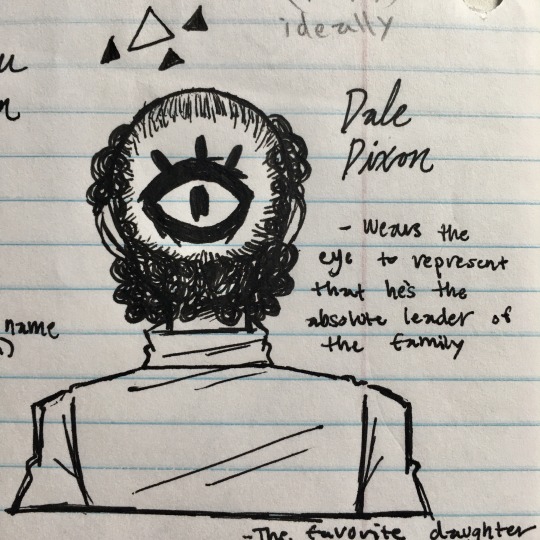 ideally
Dale
Dixon
- Wears the
eye to represent
that he's the
absolute leader of
the family
name
-The favorite daughter